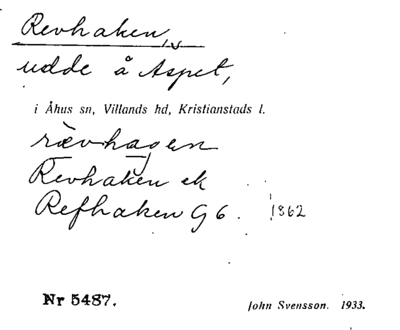 Revhaken,
udde å Aspet,
i Åhus sn, Villands hd, Kristianstads l.
rævhagen
Revhaken ek
Refhaken G 6. 1862
Nr 5487. John Svensson. 1933.